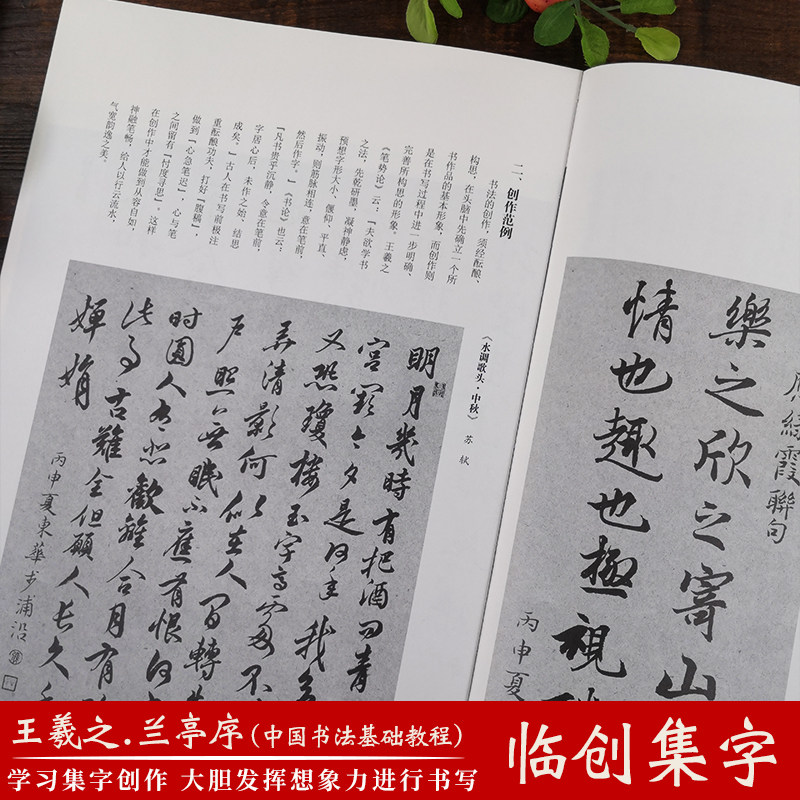 二、创作范例
书法的创作，须经酝酿、
构思，在头脑中先确立一个所
书作品的基本形象，而创作则
是在书写过程中进一步明确、
完善所构思的形象。王羲之
《笔势论》云：「夫欲学书
之法，先乾研墨，凝神静虑，
预想字形大小、偃仰、平直、
振动，则筋脉相连，意在笔前，
然后作字。」《书论》也云：
「凡书贵乎沉静，令意在笔前，
字居心后，未作之始，结思
成矣。」古人在书写前极注
重酝酿功夫，打好「腹稿」，
做到「心急笔迟」，心与笔
之间留有「忖度寻思」，这样
在创作中才能做到从容自如，
神融笔畅，给人以行云流水、
气宽韵逸之美。
《水调歌头·中秋》 苏轼
明月幾時有把酒问青
宫闕今夕是何年我
又恐瓊楼玉宇高處不
弄清影何似在人間轉
户照無眠不應有恨何
時圆人有悲歡離合月有
此事古難全但願人长久
婵娟
丙申夏東華步浦沿
霞聯句
樂之欣之寄山
情也趣也極視
丙申夏
王羲之.兰亭序(中国书法基础教程)
学习集字创作 大胆发挥想象力进行书写
临创集字